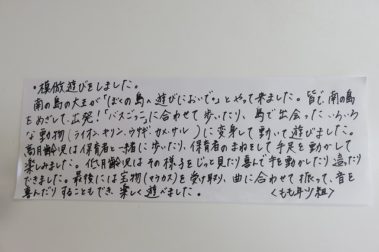 ・模倣遊びをしました。
南の島の大王が「ぼくの島へ遊びにおいで。」とやって来ました。皆で、南の島
をめざして、出発!「バスごっこ」に合わせて歩いたり、島で出会ったいろいろ
な動物(ライオン、キリン、ウサギ、カメ、サル)に変身して動いて遊びました。
高月齢児は保育者と一緒に歩いたり、保育者のまねをして手足を動かして
楽しみました。低月齢児はその様子をじっと見たり喜んで手を動かしたり
できました。最後には宝物(マラカス)を受け取り、曲に合わせて振って、音を
喜んだりすることもでき、楽しく遊べました。